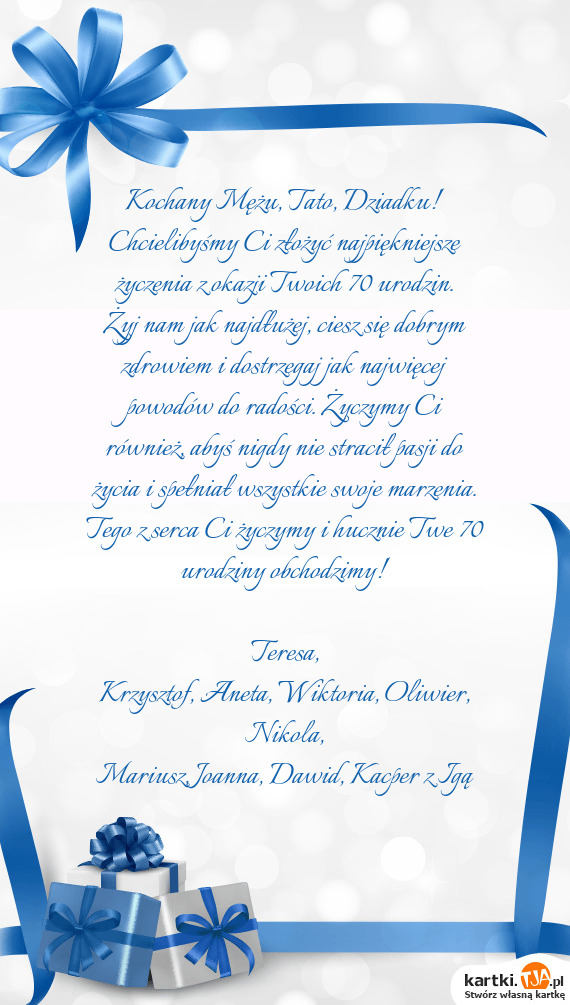 Kochany Mężu, Tato, Dziadku!
Chcielibyśmy Ci złożyć najpiękniejsze
życzenia z okazji Twoich 70 urodzin.
Żyj nam jak najdłużej, ciesz się dobrym
zdrowiem i dostrzegaj jak najwięcej
powodów do radości. Życzymy Ci
również, abyś nigdy nie stracił pasji do
życia i spełniał wszystkie swoje marzenia.
Tego z serca Ci życzymy i hucznie Twe 70
urodziny obchodzimy!
Teresa,
Krzysztof, Aneta, Wiktoria, Oliwier,
Nikola,
Mariusz,Joanna, Dawid, Kacper z Igą
kartki.TJA.pl
Stwórz własną kartkę